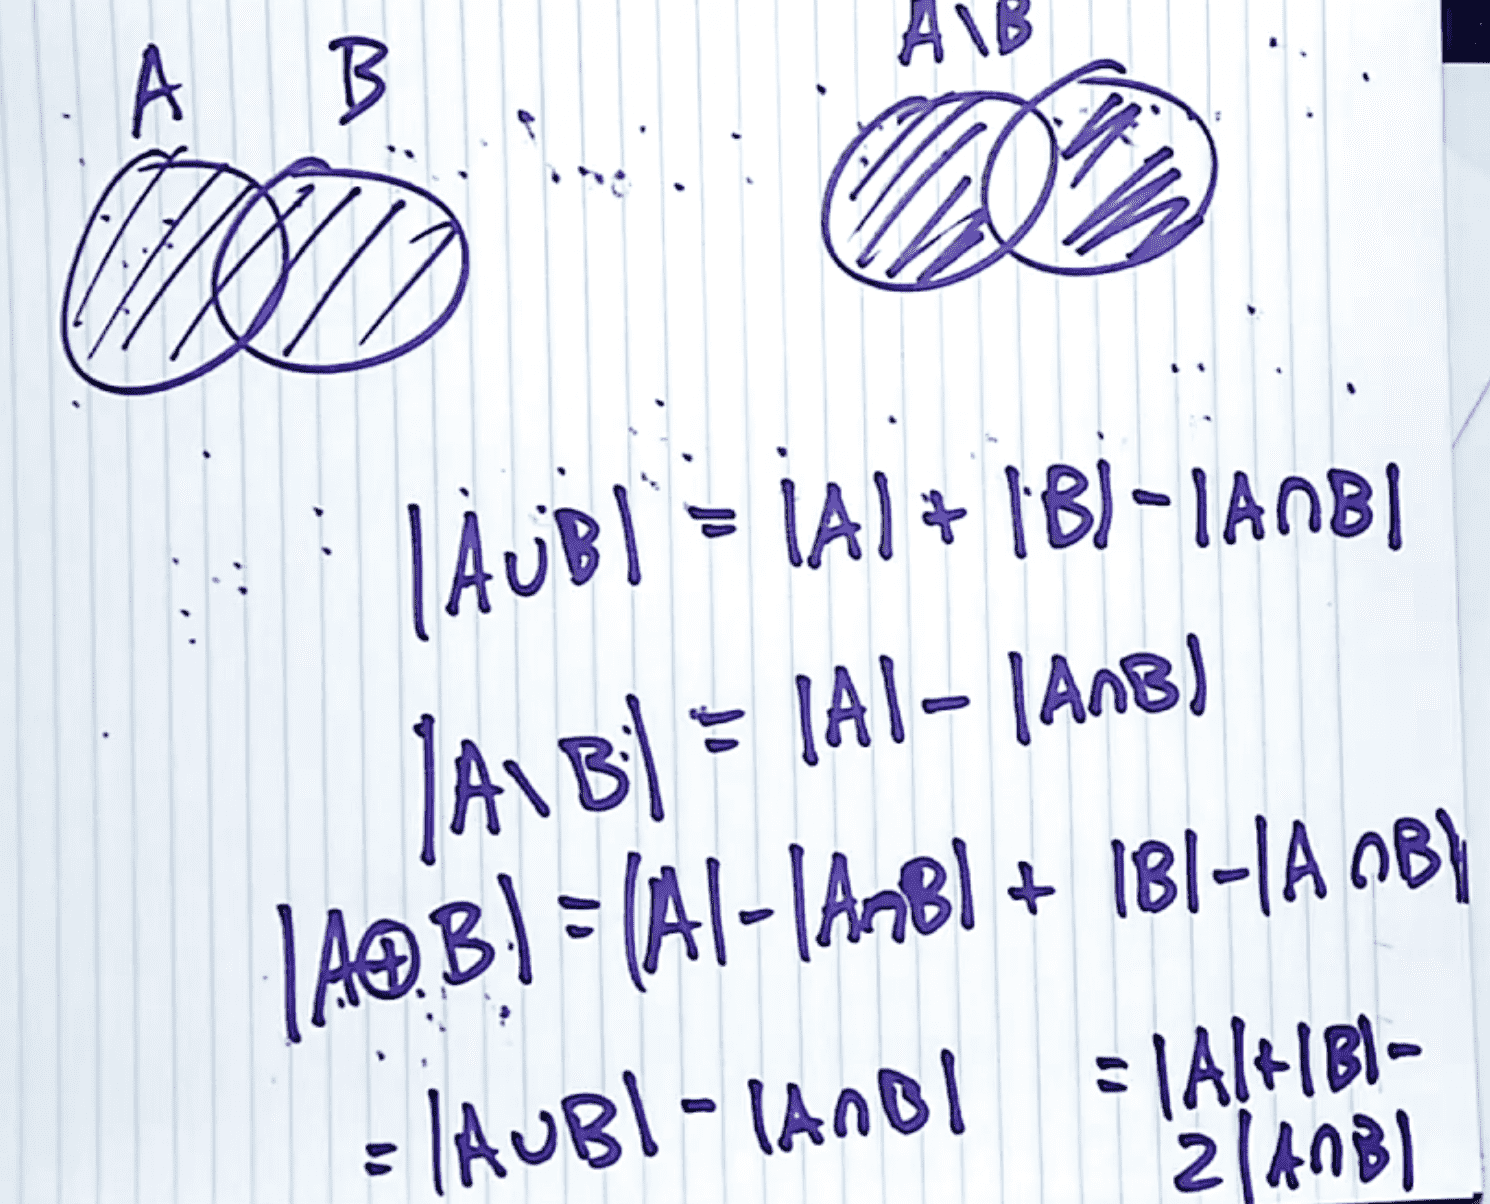 A B
A\B
|A∪B| = |A| + |B| - |A∩B|
|A\B| = |A| - |A∩B|
|A⊕B| = |A| - |A∩B| + |B| - |A∩B|
= |A∪B| - |A∩B| = |A| + |B| -
2|A∩B|